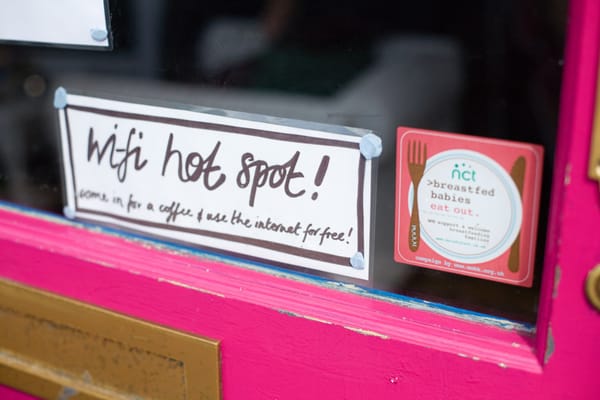 wifi hot spot!
come in for a coffee & use the internet for free!
nct
>breastfed
babies
eat out.
We support & welcome
breastfeeding
families